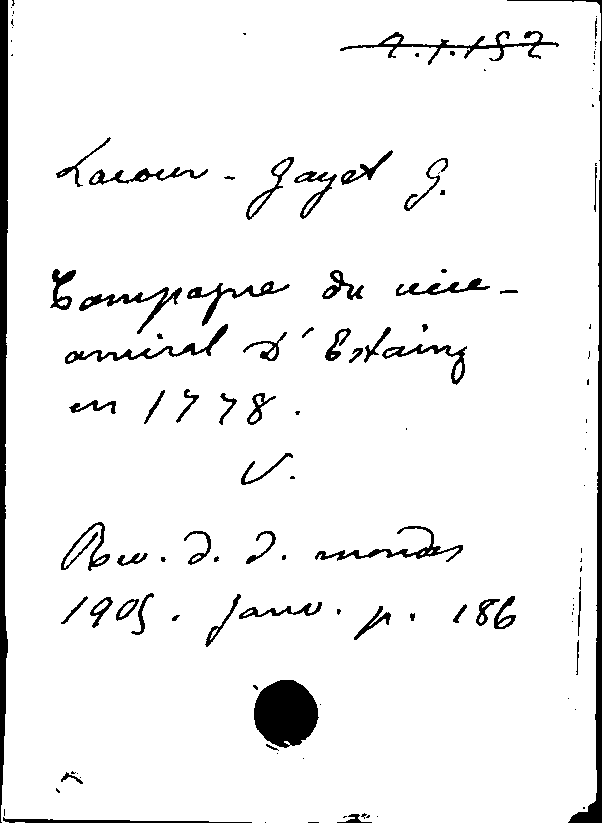 2.7.152
Lacour-Gayet G.
Campagne du vice-
amiral D'Estaing
en 1778.
V.
Rev. d. d. mondes
1905. Janv. p. 186